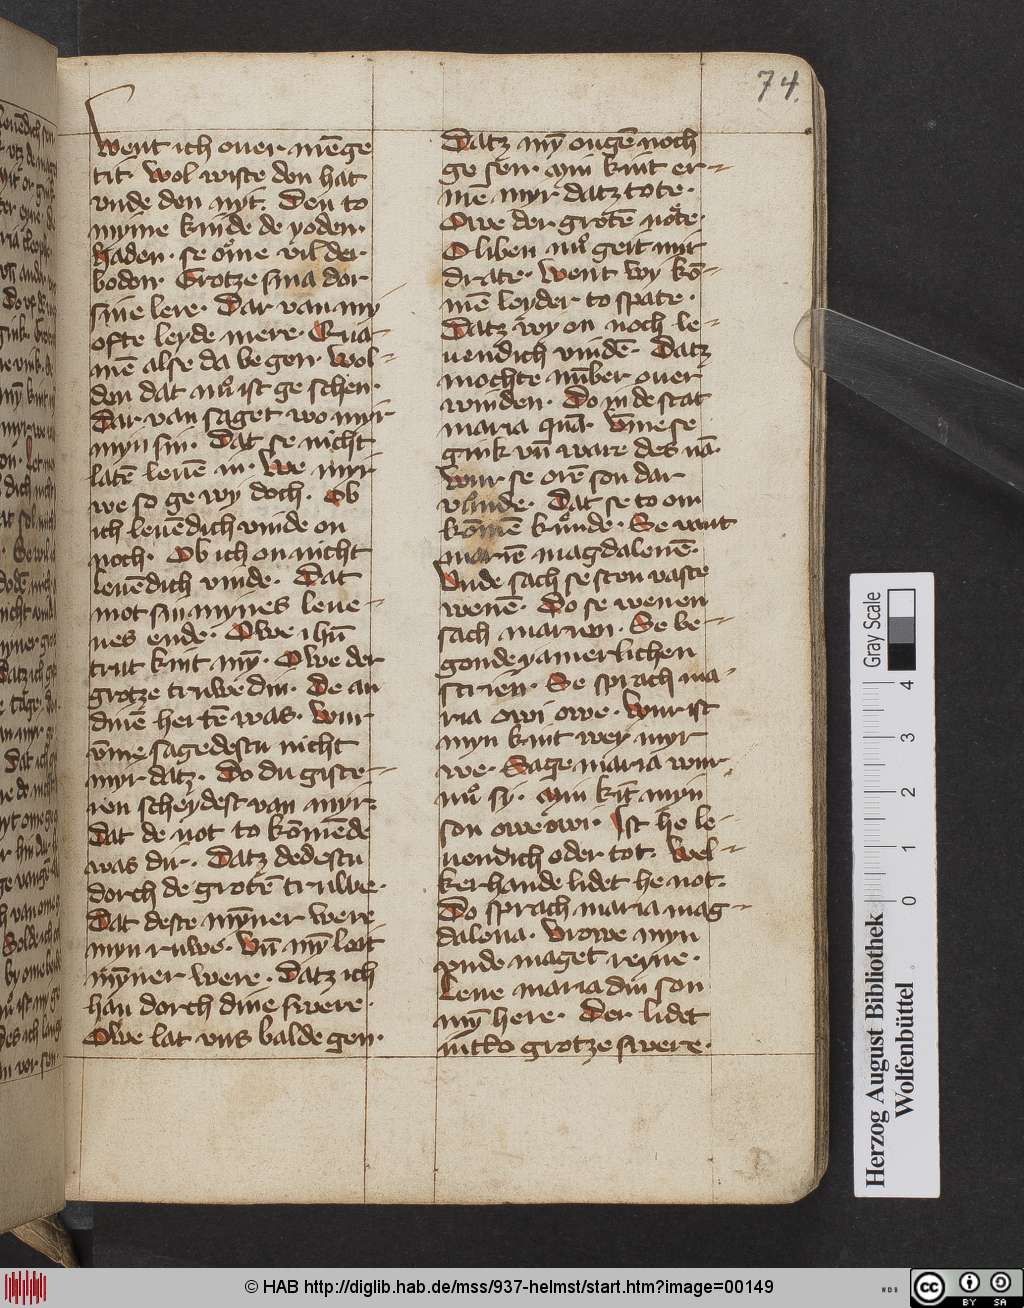 74.
went ich ouer mēge
tit. wol wiste den hat
vnde den nyt. Den to
myme kinde de yoden.
haden. se ome vil der
boden. Grotze sma dor
sine lere. Dar van my
ofte leyde mere. Qua-
mē alse da be gen. wol-
den dat nů ist ge schen.
Dar van saget wo myr
myn sin. Dat se nicht
latē leuē in. We myr
we so ge wy doch. Ob
ich leuēdich vinde on
noch. Ob ich on nicht
leuēdich vinde. Dat
mot sin mynes leue-
nes ende. Owe ihū
trut kint mȳ. Owe der
grotze truwe din. De an
dinē hertē was. wur
v̄me sagedestu nicht
myr datz. Do du giste-
ren scheydest van myr
Dat de not to komēde
was dir. Datz dedestu
dorch de grotē truwe.
Dat deste mȳner were
myn ruwe. Vn̄ mȳ leit
mȳner were. Datz ich
han dorch dine swere.
Owe lat vns balde gen.
Datz mȳ ougē noch
ge sen. myn kint er-
mē myr datz tote.
Owe der grotē note.
O liben nů geit mit
drate. went wy ko-
mē leyder to spate.
Datz wy on noch le-
uendich vindē. Datz
mochte nūber ouer
winden. Do in de stat
maria quā. v̄me se
gink vn̄ ware des nā.
wur se orē son dar
vůnde. Dat se to om
komē kůnde. Se vant
mariē magdalenē.
Vnde sach se sten vaste
wenē. Do se wenen
sach marien. Se be-
gonde yamerlichen
scrien. Se sprach ma-
ria owi owe. wur ist
myn kint wey myr
we. Sage maria wur
nů sy. myn kīt myn
son owe owi. Ist he le-
uendich oder tot. wel-
kerhande lidet he not.
Do sprach maria mag-
dalena. Vrowe myn
vnde maget reyne.
Leue maria din son
mȳ here. Der lidet
nicko grotze swere.
Gray Scale
0 1 2 3 4
Herzog August Bibliothek
Wolfenbüttel
© HAB http://diglib.hab.de/mss/937-helmst/start.htm?image=00149
WDB
cc BY SA